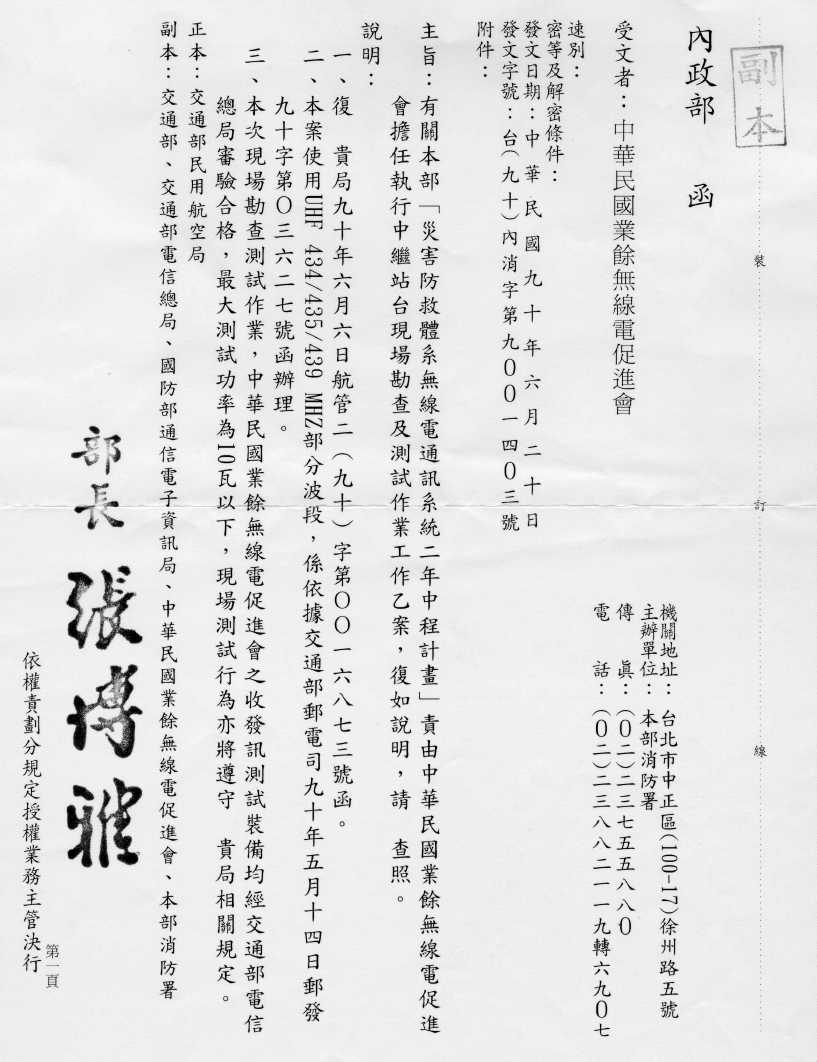 副本
裝
訂
線
內政部 函
機關地址：台北市中正區(100-17)徐州路五號
主辦單位：本部消防署
傳 真：(０二)二三七五五八八０
電 話：(０二)二三八八二一一九轉六九０七
受文者：中華民國業餘無線電促進會
速別：
密等及解密條件：
發文日期：中華民國九十年六月二十日
發文字號：台(九十)內消字第九００一四０三號
附件：
主旨：有關本部「災害防救體系無線電通訊系統二年中程計畫」責由中華民國業餘無線電促進
會擔任執行中繼站台現場勘查及測試作業工作乙案，復如說明，請 查照。
說明：
一、復 貴局九十年六月六日航管二（九十）字第００一六八七三號函。
二、本案使用UHF 434/435/439 MHZ部分波段，係依據交通部郵電司九十年五月十四日郵發
九十字第０三六二七號函辦理。
三、本次現場勘查測試作業，中華民國業餘無線電促進會之收發訊測試裝備均經交通部電信
總局審驗合格，最大測試功率為10瓦以下，現場測試行為亦將遵守 貴局相關規定。
正本：交通部民用航空局
副本：交通部、交通部電信總局、國防部通信電子資訊局、中華民國業餘無線電促進會、本部消防署
部長 張博雅
依權責劃分規定授權業務主管決行
第一頁